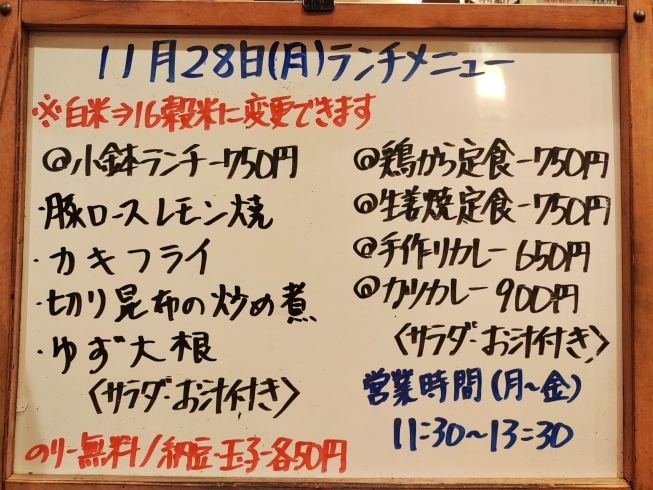 11月28日(月)ランチメニュー
※白米⇒16穀米に変更できます
@小鉢ランチー750円
・豚ロースレモン焼
・カキフライ
・切り昆布の炒め煮
・ゆず大根
〈サラダ・お汁付き〉
のり-無料/納豆・玉子-各50円
@鶏から定食-750円
@生姜焼定食-750円
@手作りカレー 650円
@カツカレー 900円
〈サラダ・お汁付き〉
営業時間(月~金)
11:30~13:30